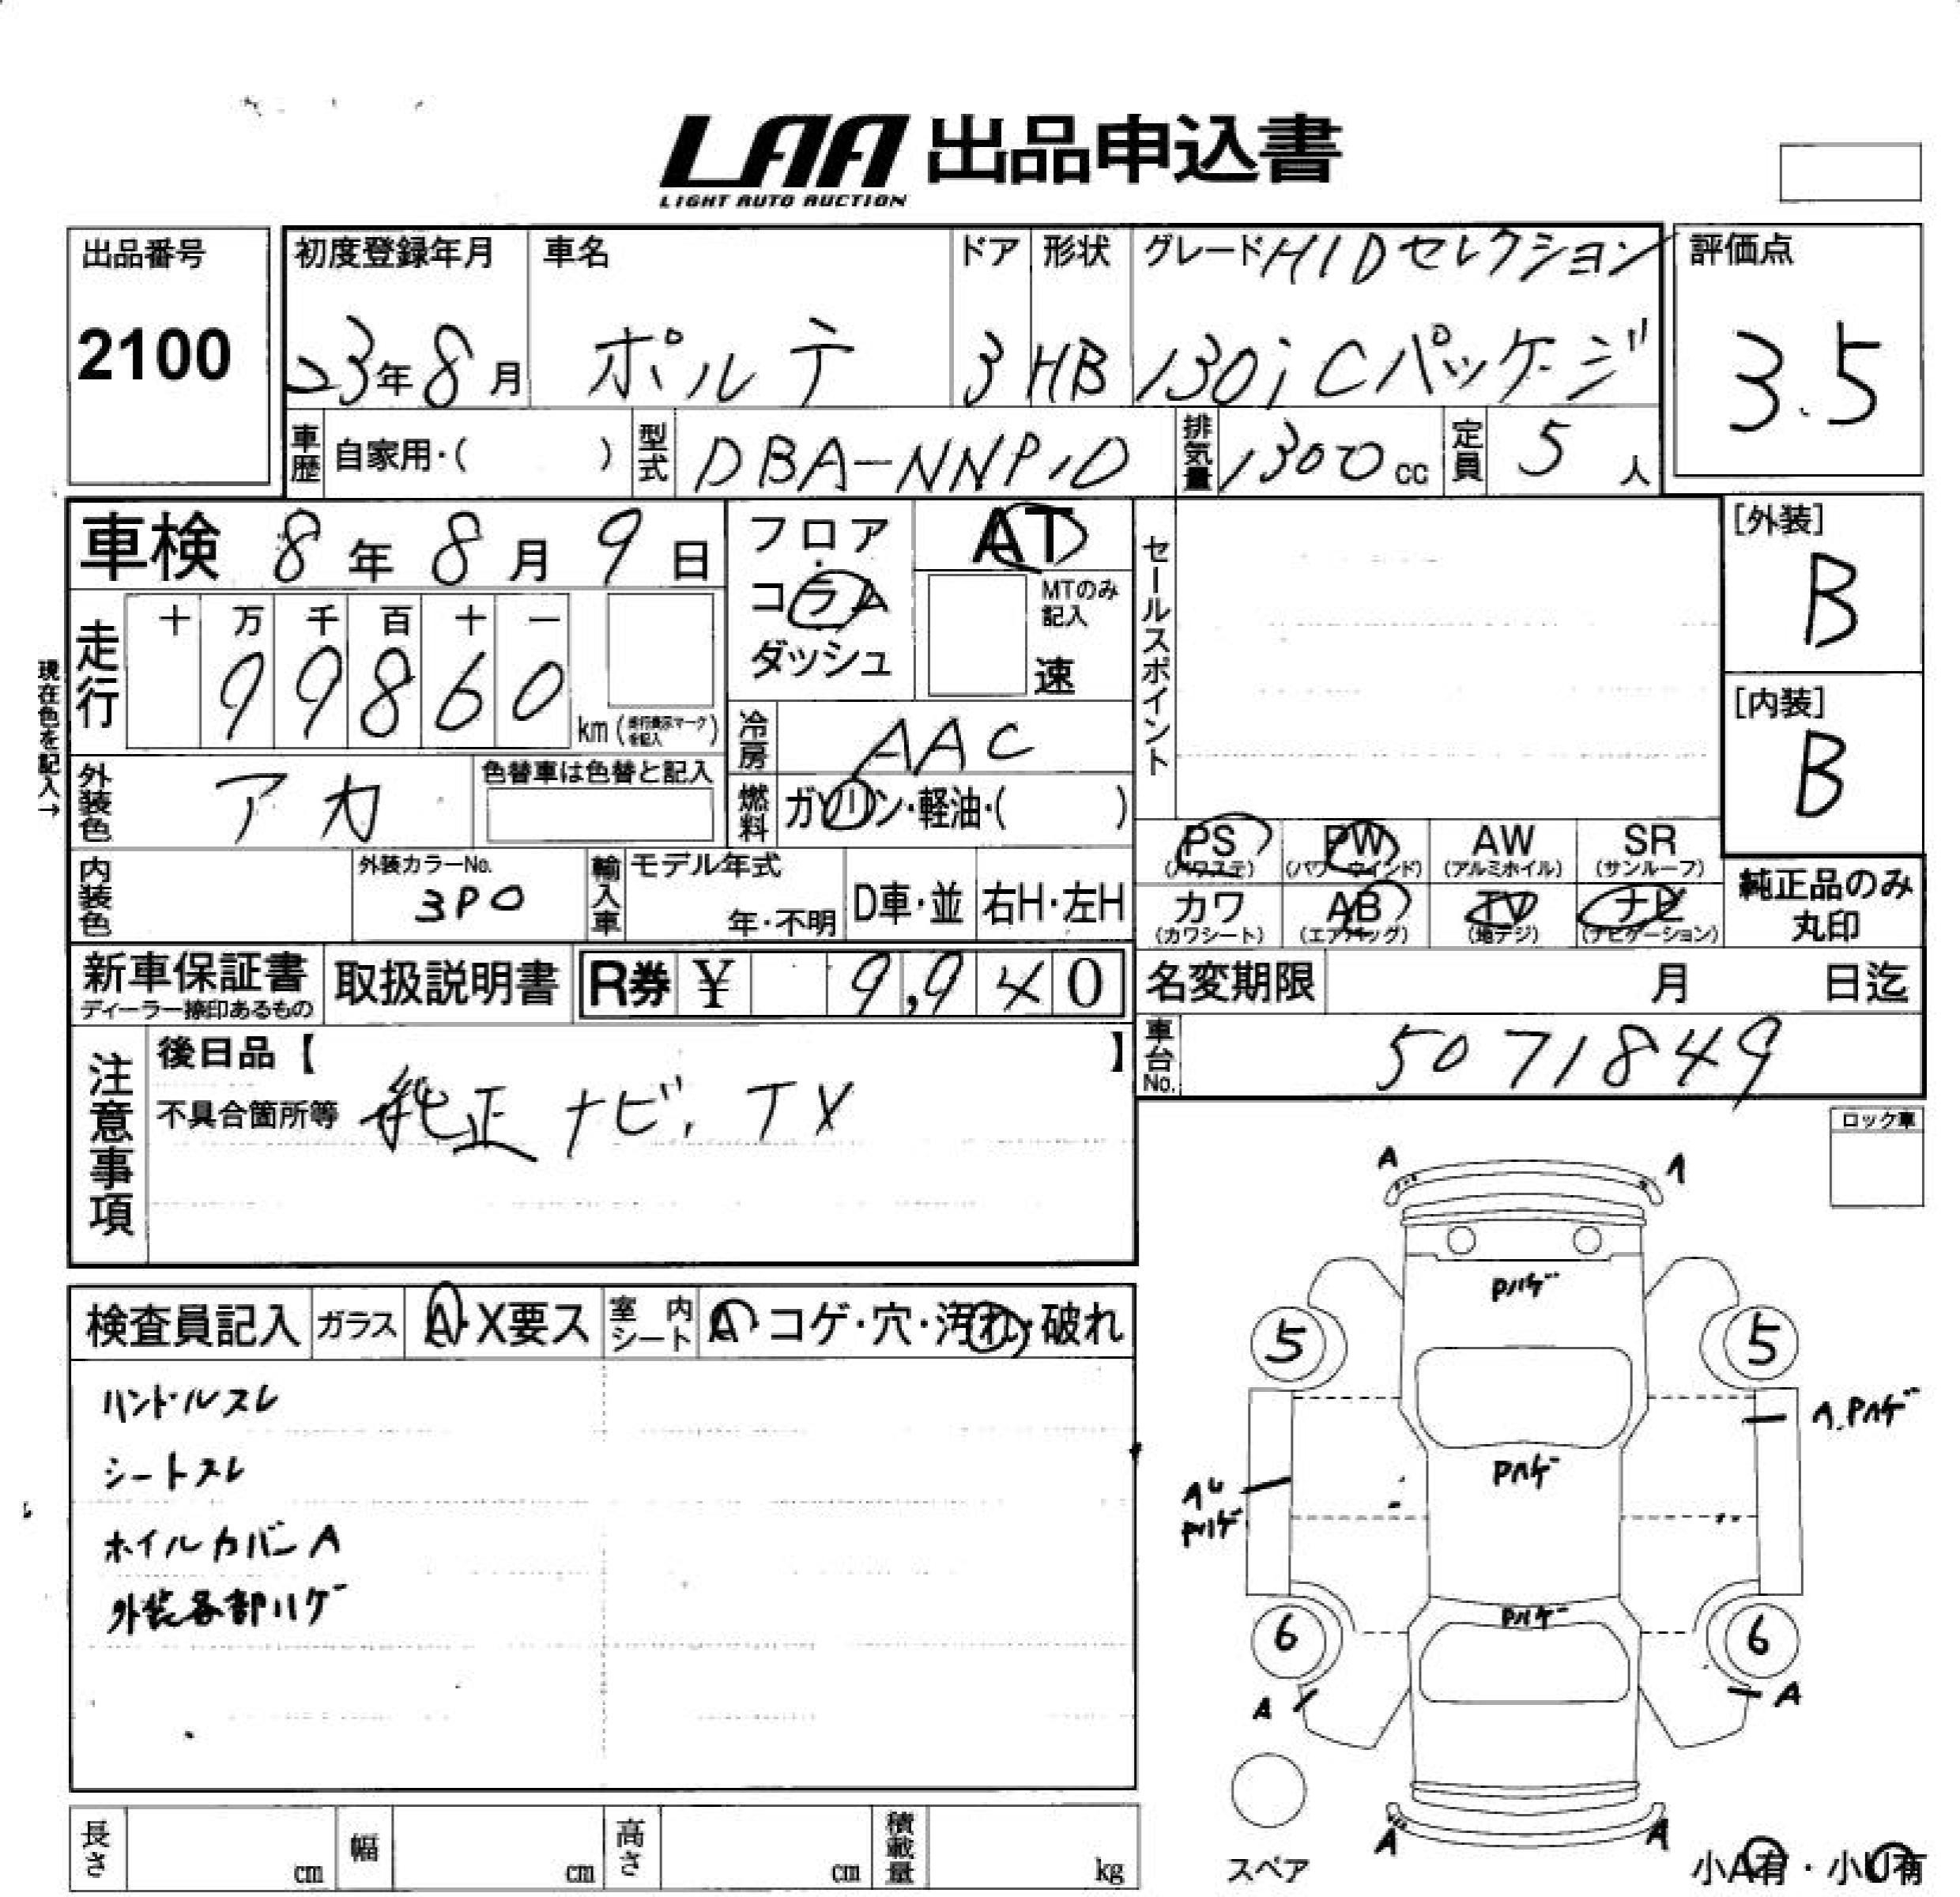 LAA 出品申込書
LIGHT AUTO AUCTION
出品番号
2100
初度登録年月
23年8月
車名
ポルテ
ドア
3
形状
HB
グレード HIDセレクション
130i Cパッケージ
評価点
3.5
車歴 自家用・( )
型式 DBA-NNP10
排気量 1300cc
定員 5人
車検 8年8月9日
フロア・コラム・ダッシュ
AT
MTのみ記入
速
セールスポイント
[外装]
B
[内装]
B
現在色を記入→
走行
十 万 千 百 十 一
9 9 8 6 0
km (走行表示マークを記入)
冷房 AAC
外装色 アカ
色替車は色替と記入
燃料 ガソリン・軽油・( )
内装色
外装カラーNo.
3P0
輸入車
モデル年式
年・不明
D車・並
右H・左H
PS (パワステ)
PW (パワーウインド)
AW (アルミホイル)
SR (サンルーフ)
カワ (カワシート)
AB (エアバッグ)
TV (地デジ)
ナビ (ナビゲーション)
純正品のみ丸印
新車保証書
ディーラー捺印あるもの
取扱説明書
R券 ¥ 9,940
名変期限 月 日迄
車台No. 5071849
注意事項
後日品【 】
不具合箇所等 純正ナビ,TX
ロック車
検査員記入
ガラス A・X要ス
室内シート A・コゲ・穴・汚れ・破れ
ハンドルスレ
シートスレ
ホイルカバーA
外装各部ハゲ
A
Pハゲ
5 5
A.Pハゲ
Pハゲ
Pハゲ
Pハゲ
6 6
A A
A A
スペア
小A有・小U有
長さ cm
幅 cm
高さ cm
積載量 kg